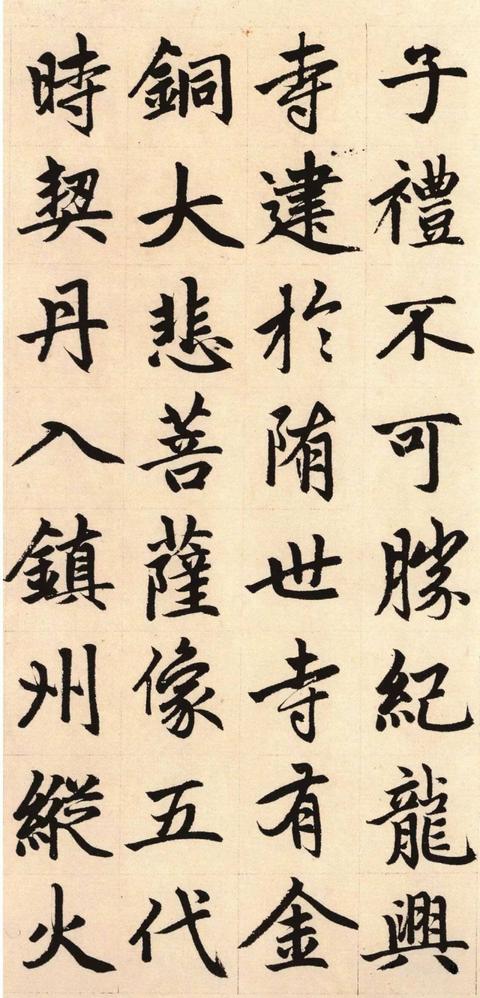 子禮不可勝紀龍興
寺建於隋世寺有金
銅大悲菩薩像五代
時契丹入鎮州縱火